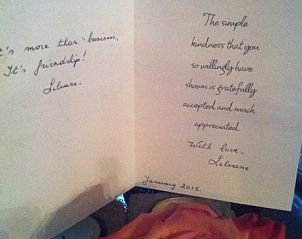 It's more than "business"
It's friendship!
Liliane.
The simple
kindness that you
so willingly have
shown is gratefully
accepted and much
appreciated
With love.
Liliane
January 2015.